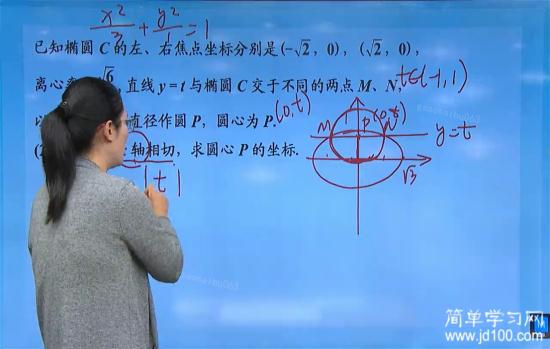 x²/3 + y²/1 = 1
已知椭圆 C 的左、右焦点坐标分别是 (-√2, 0), (√2, 0),
离心率 √6, 直线 y = t 与椭圆 C 交于不同的两点 M、N, t∈(-1, 1)
直径作圆 P, 圆心为 P. (0, t)
轴相切, 求圆心 P 的坐标.
|t|
M
P(0, t)
N
y=t
√3
简单学习网
www.jd100.com
M